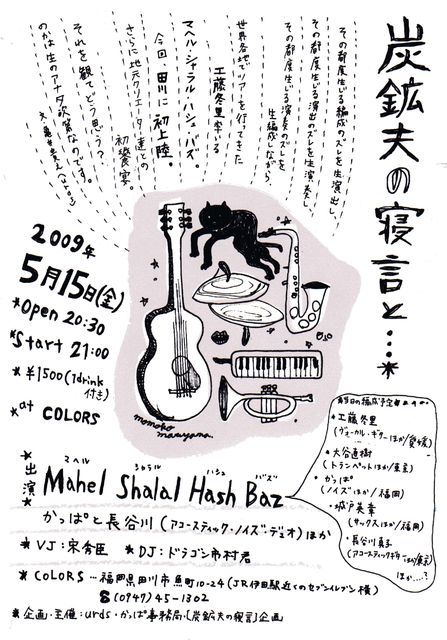 炭鉱夫の寝言と…*
その都度生じる編成のズレを生演出し、
その都度生じる演出のズレを生演奏し、
その都度生じる演奏のズレを
生編成しながら、
世界各地でツアーを行ってきた
工藤冬里率いる
マヘル・シャラル・ハシュ・バズ。
今回 田川に初上陸。
さらに地元クリエーター達との
初饗宴。
それを観てどう思う?
のかは生のアナタ次第なのです。
2009年
5月15日(金)
*Open 20:30
*Start 21:00
*¥1500(1drink
付き)
*at COLORS
momoko maruyama.
*出演*
マヘル シャラル ハシュ バズ
Mahel Shalal Hash Baz
かっぱと長谷川(アコースティック・ノイズ・デオ)ほか
*VJ:宋秀臣 *DJ:ドラゴン市村君
*COLORS…福岡県田川市魚町10-24(JR伊田駅近くのセブンイレブン横)
☎(0947)45-1302
*企画・主催:urds・かっぱ事務局・[炭鉱夫の寝言]企画
当日の編成予定
*工藤冬里
(ヴォーカル・ギターほか/愛媛)
*大谷直樹
(トランペットほか/東京)
*かっぱ
(ノイズほか/福岡)
*城戸英幸
(サックスほか/福岡)
*長谷川真子
(アコースティックギターほか/東京)
ほか…?